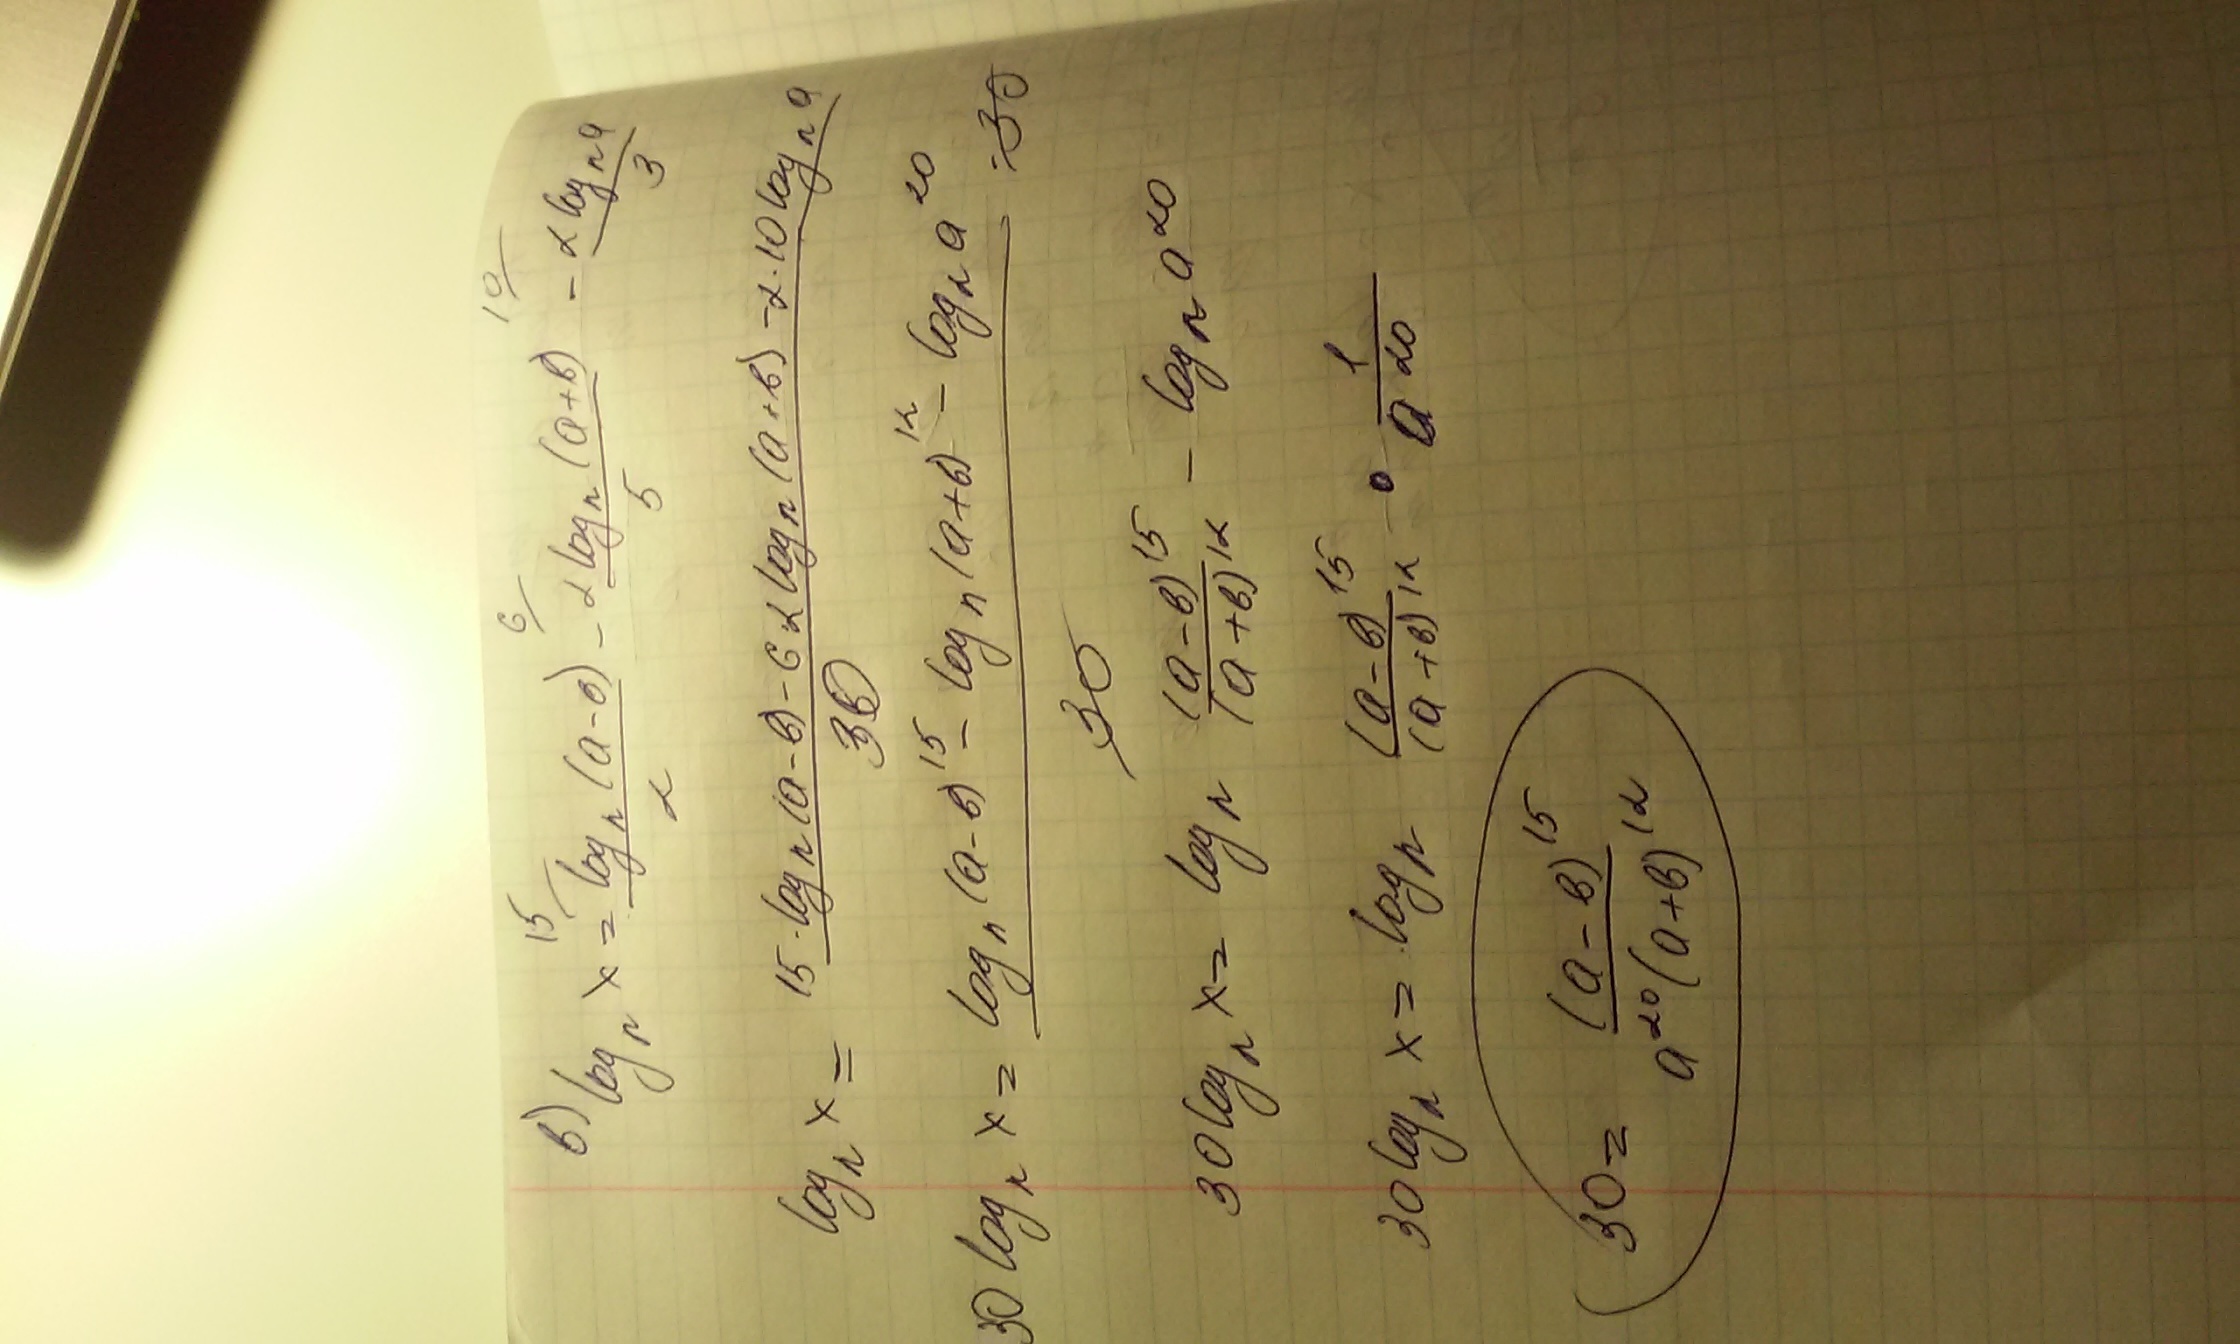 15/ 6/ 10/
в) logₙ x = logₙ(a-в)/2 - 2logₙ(a+в)/5 - 2logₙa/3
logₙ x = 15·logₙ(a-в)-6·2logₙ(a+в)-2·10logₙa/30
30logₙ x = logₙ(a-в)¹⁵ - logₙ(a+в)¹² - logₙa²⁰/30 ·30
30logₙ x = logₙ (a-в)¹⁵/(a+в)¹² - logₙa²⁰
30logₙ x = logₙ (a-в)¹⁵/(a+в)¹² · 1/a²⁰
30 = (a-в)¹⁵/a²⁰(a+в)¹²